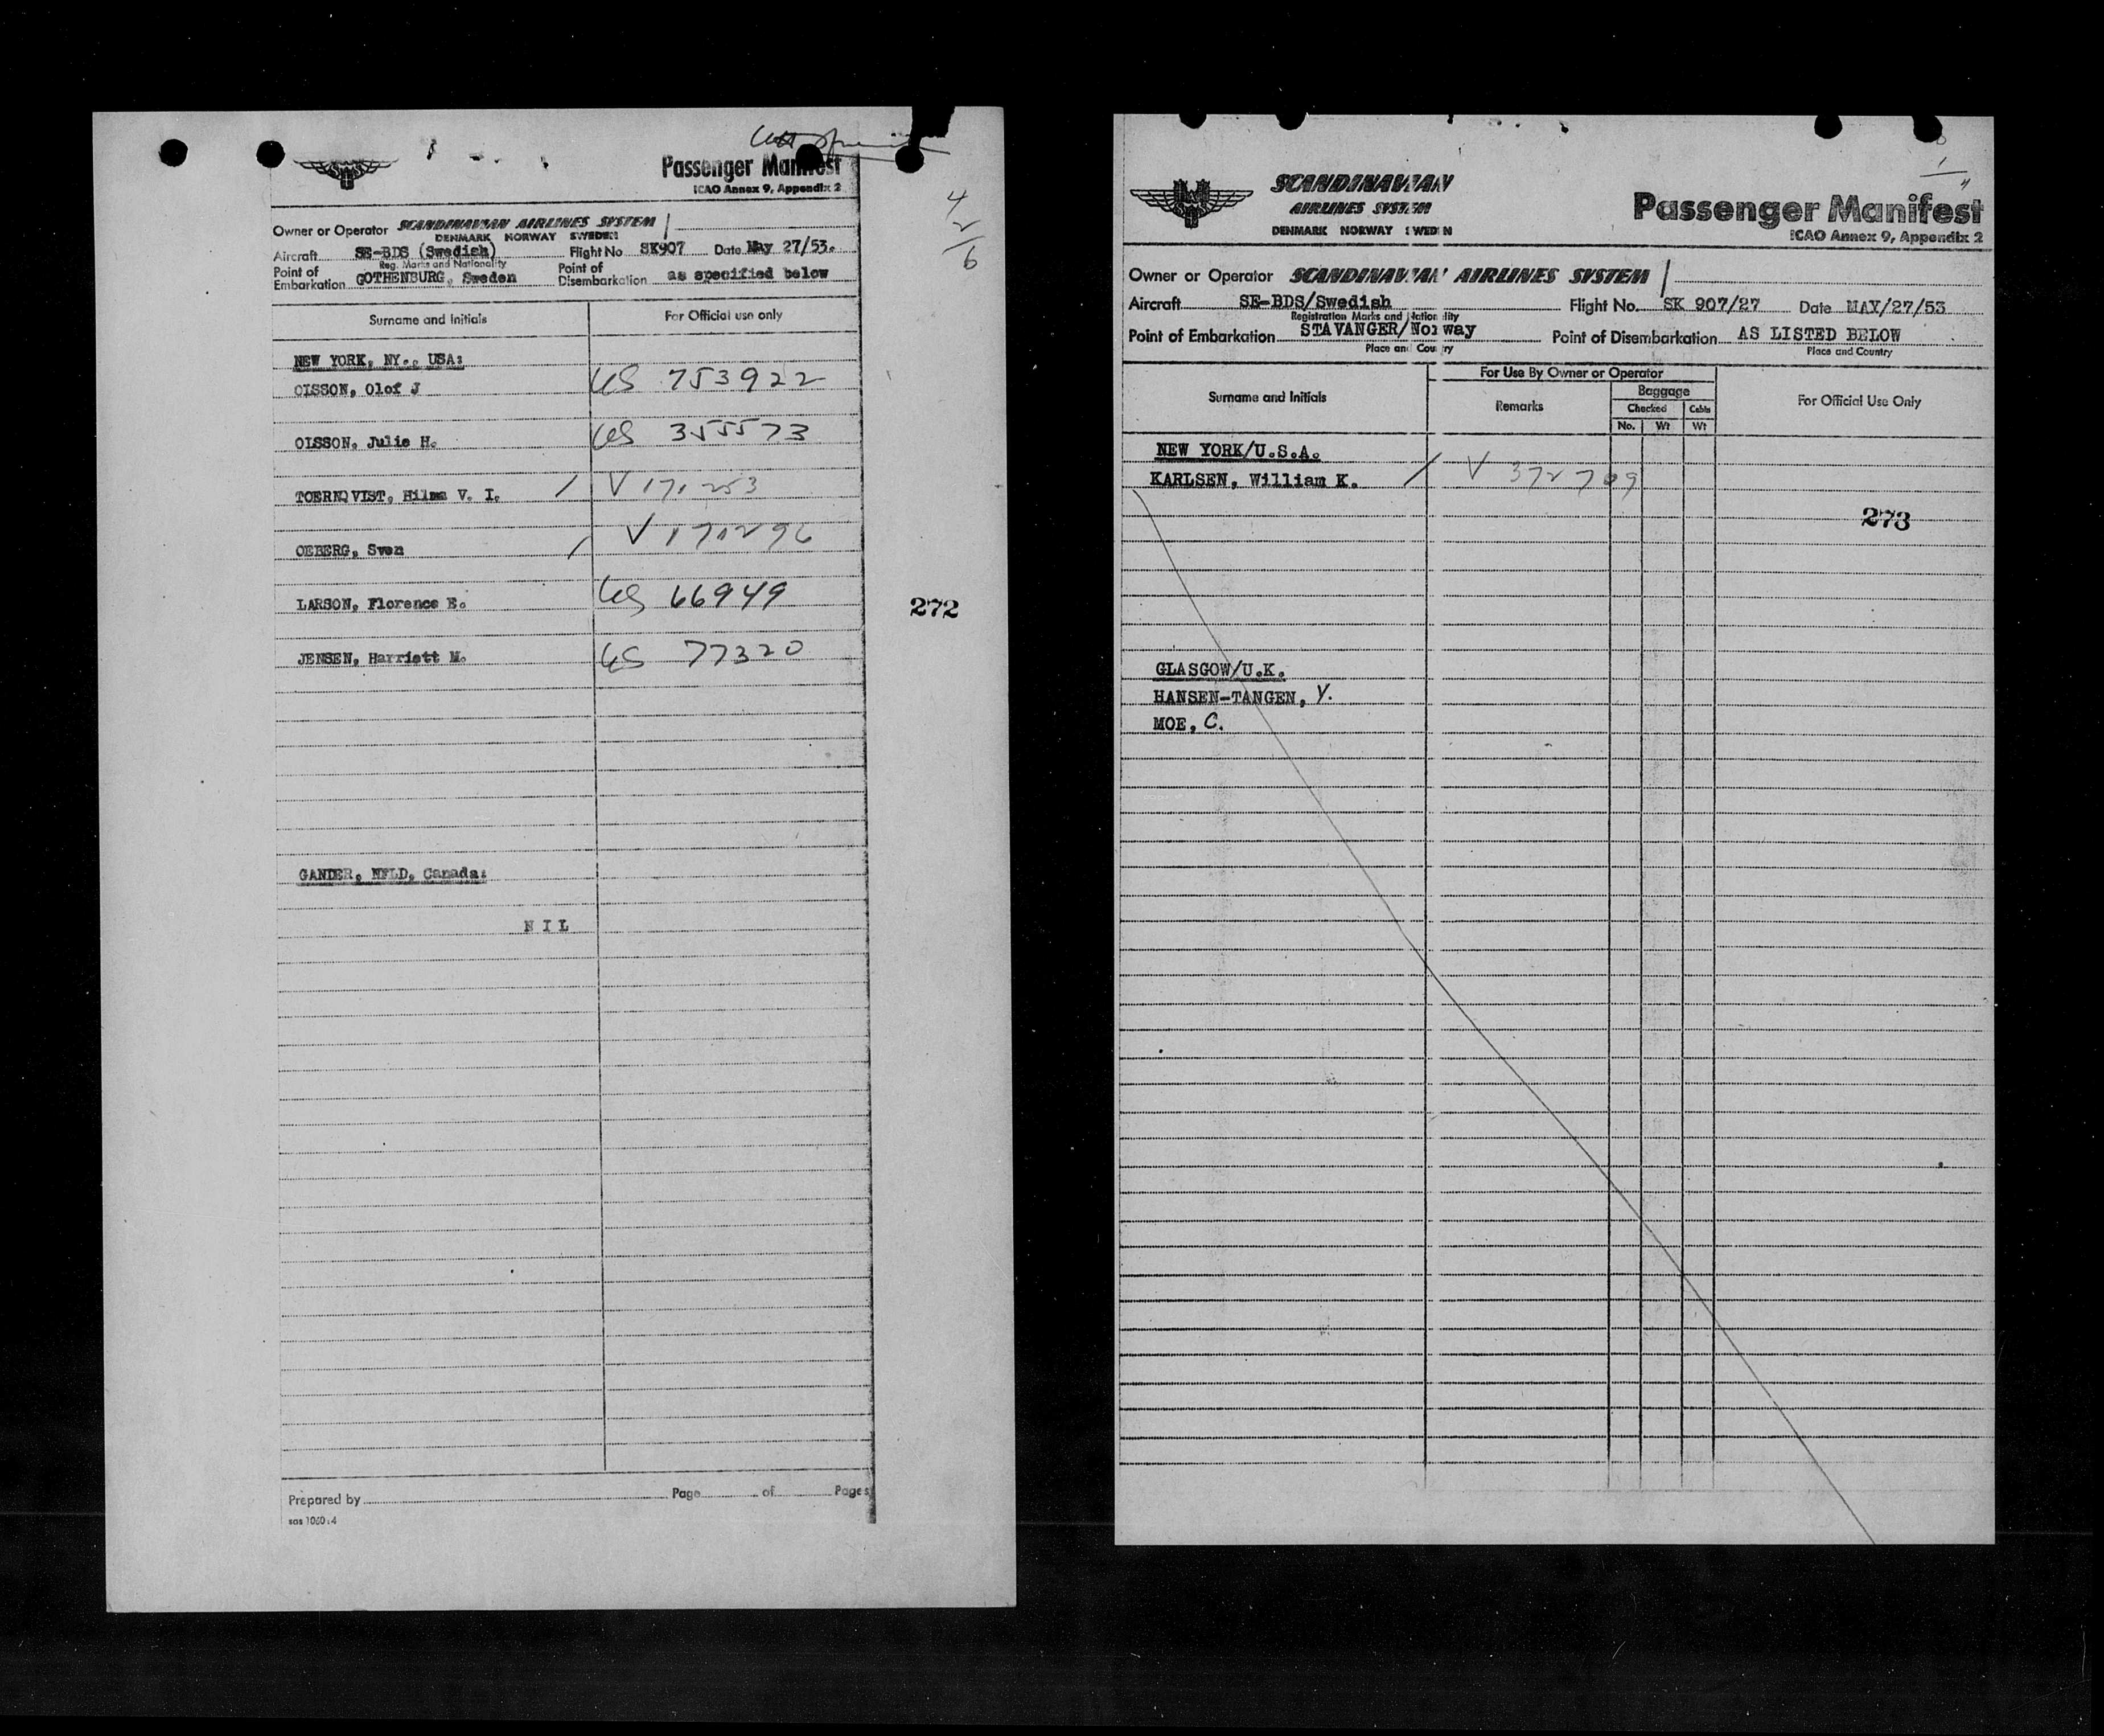 Passenger Manifest
ICAO Annex 9, Appendix 2
4
2
6
Owner or Operator SCANDINAVIAN AIRLINES SYSTEM
DENMARK NORWAY SWEDEN
Aircraft SE-BDS (Swedish) Flight No SK907 Date May 27/53.
Reg. Marks and Nationality
Point of Embarkation GOTHENBURG, Sweden Point of Disembarkation as specified below
Surname and Initials For Official use only
NEW YORK, NY., USA:
OLSSON, Olof J US 753922
OLSSON, Julie H. US 355573
TOERNQVIST, Hilma V. I. / V 171 253
OEBERG, Sven / V 171296
LARSON, Florence E. US 66949
272
JENSEN, Harriett M. US 77320
GANDER, NFLD, Canada:
N I L
Prepared by Page of Pages
sas 1060:4
SCANDINAVIAN
AIRLINES SYSTEM
DENMARK NORWAY SWEDEN
Passenger Manifest
ICAO Annex 9, Appendix 2
Owner or Operator SCANDINAVIAN AIRLINES SYSTEM
Aircraft SE-BDS/Swedish Flight No. SK 907/27 Date MAY/27/53
Registration Marks and Nationality
Point of Embarkation STAVANGER/Norway Point of Disembarkation AS LISTED BELOW
Place and Country Place and Country
For Use By Owner or Operator
Surname and Initials Remarks Baggage For Official Use Only
Checked Cabin
No. Wt Wt
NEW YORK/U.S.A.
KARLSEN, William K. / V 372709
273
GLASGOW/U.K.
HANSEN-TANGEN, Y.
MOE, C.